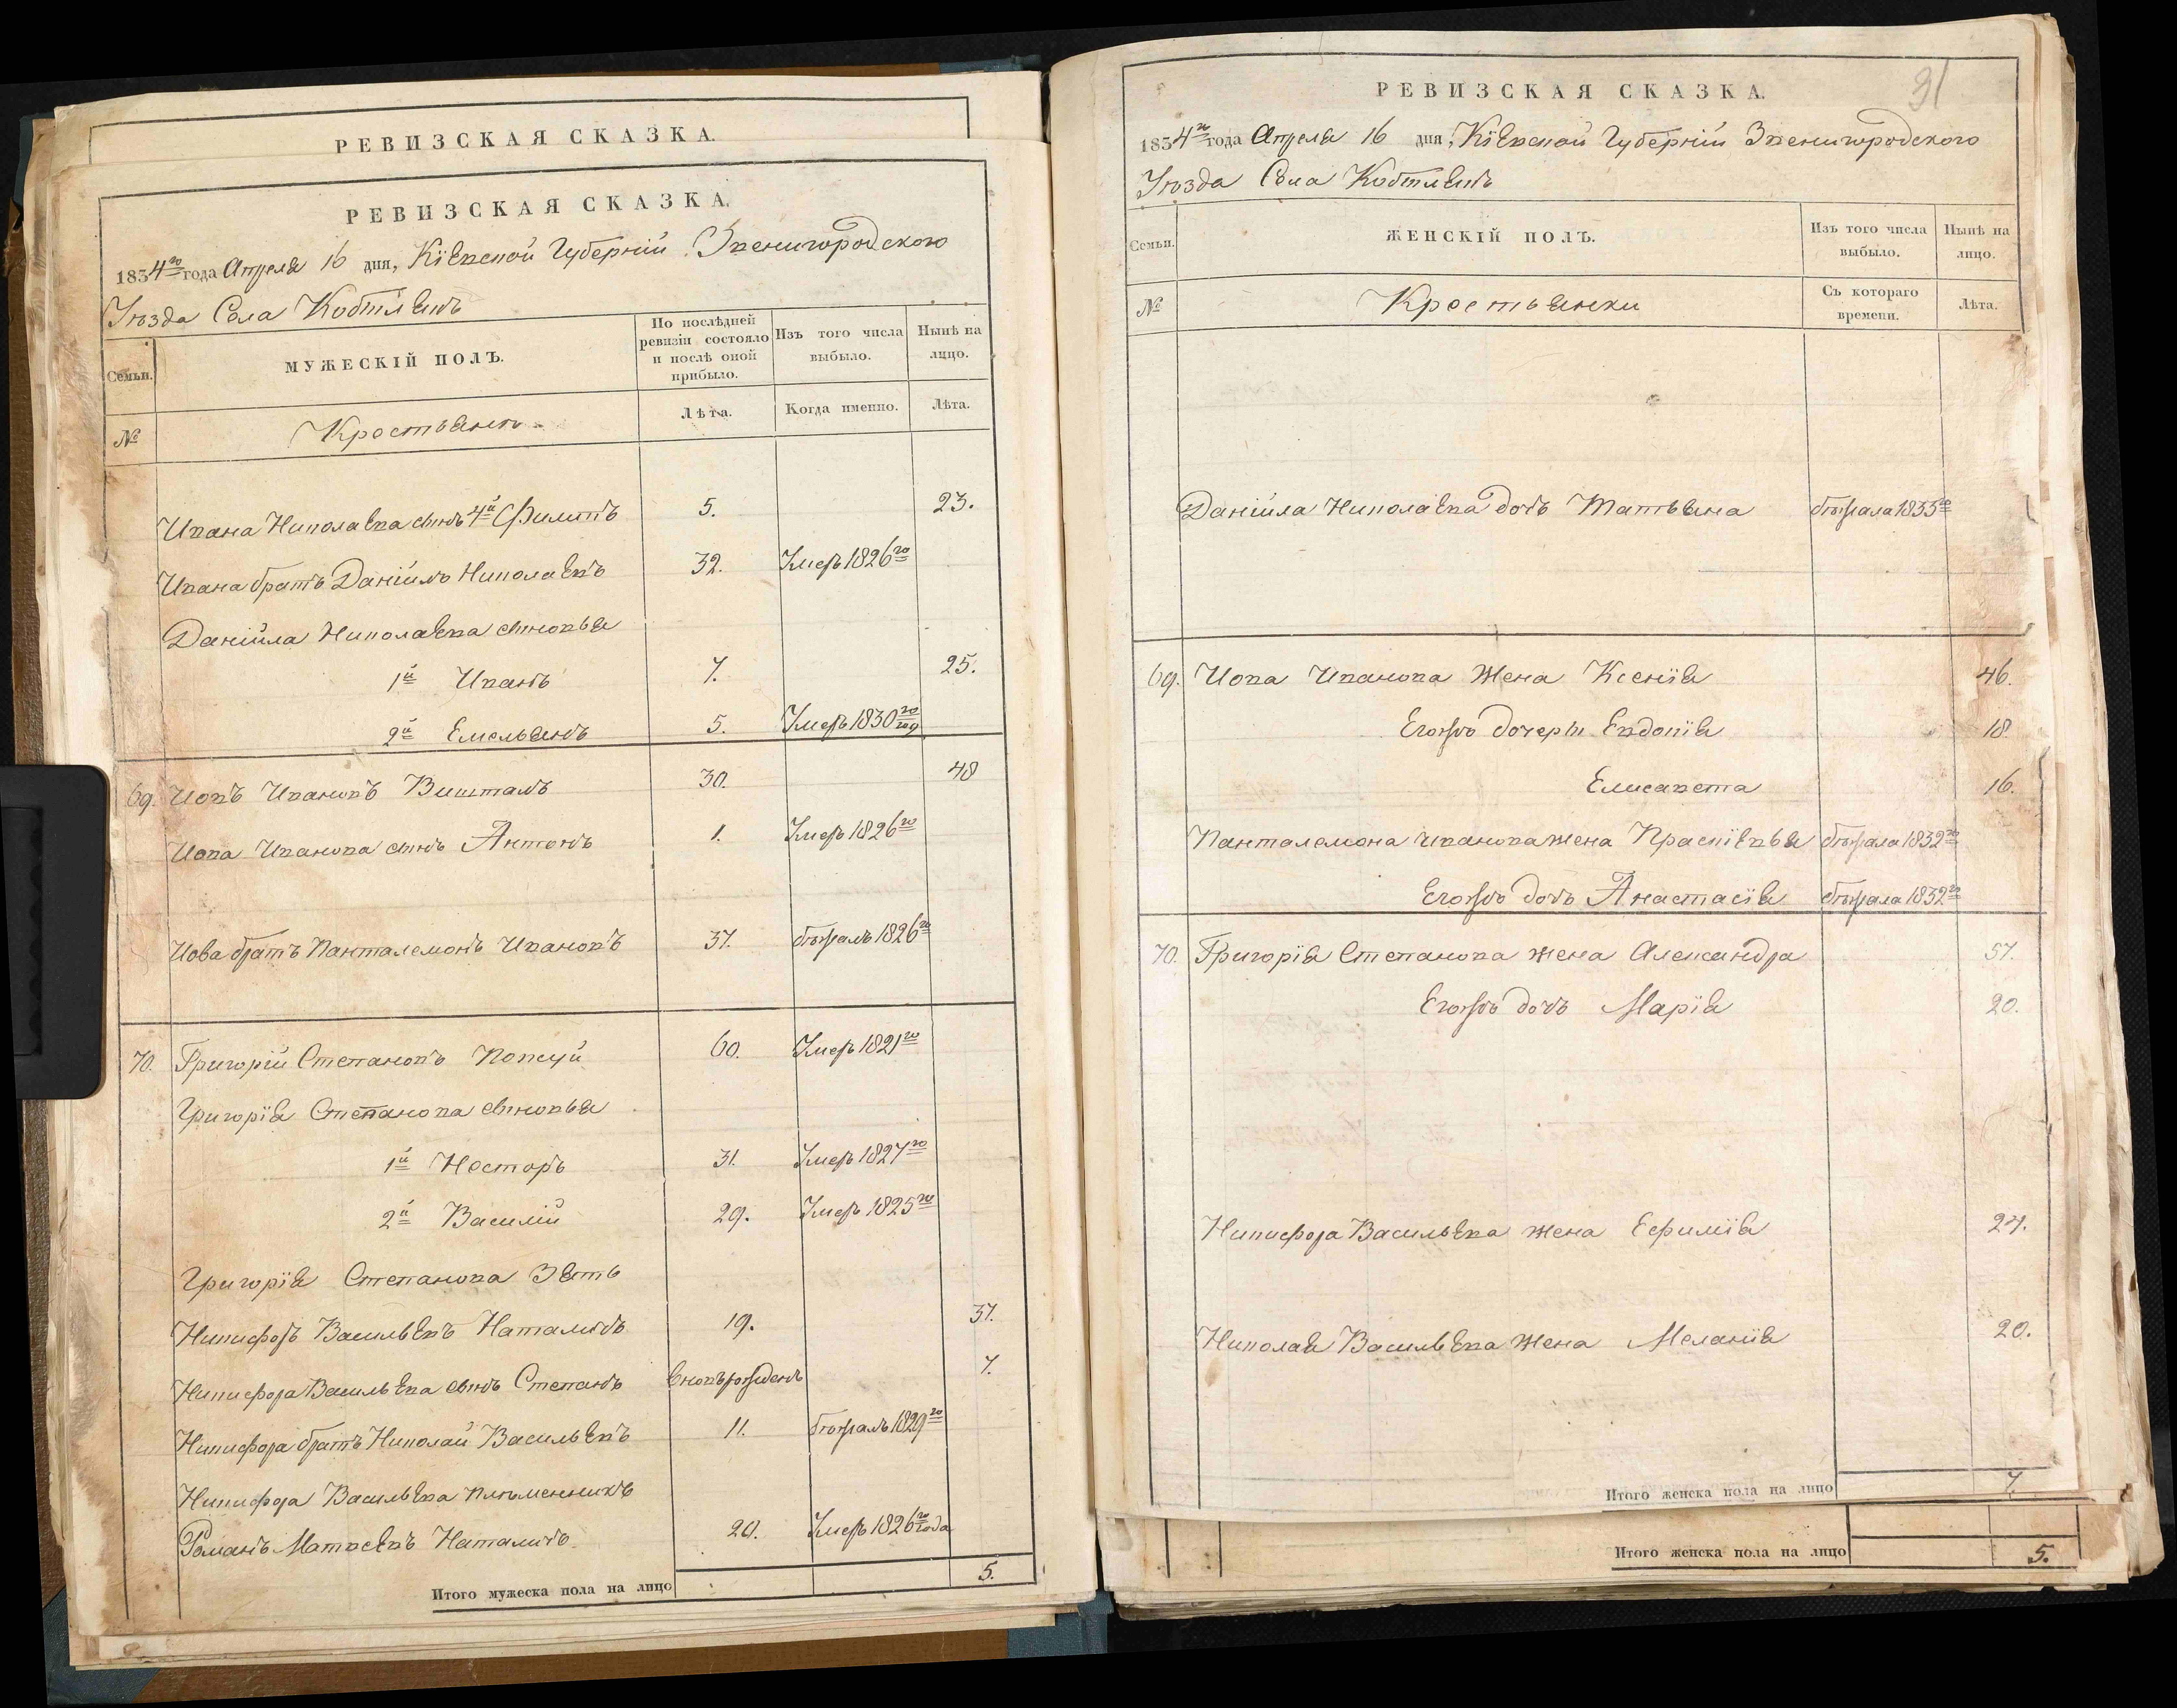 РЕВИЗСКАЯ СКАЗКА.
РЕВИЗСКАЯ СКАЗКА.
1834го года Апреля 16 дня, Кіевской Губерніи Звенигородского
Уѣзда Села
МУЖЕСКІЙ ПОЛЪ.
По послѣдней ревизіи состояло и послѣ оной прибыло.
Изъ того числа выбыло.
Нынѣ на лицо.
Семьи.
№
Крестьянъ
Лѣта.
Когда именно.
Лѣта.
Ивана Николаева сынъ 4й Филипъ 5. 23.
Ивана братъ Даніилъ Николаевъ 32. Умеръ 1826го
Даніила Николаева сыновья
1й Иванъ 7. 25.
2й Емельянъ 5. Умеръ 1830го год
69. Иовъ Ивановъ 30. 48
Иова Иванова сынъ Антонъ 1. Умеръ 1826го
Иова братъ Панталемонъ Ивановъ 37. бѣжалъ 1826го
70. Григорій Степановъ 60. Умеръ 1821го
Григорія Степанова сыновья
1й Несторъ 31. Умеръ 1827го
2й Василій 29. Умеръ 1825го
Григорія Степанова Зять
Никифоръ Васильевъ 19. 37.
Никифора Васильева сынъ Степанъ вновьрожденъ 7.
Никифора братъ Николай Васильевъ 11. бѣжалъ 1829го
Никифора Васильева племенникъ
Романъ Матвеевъ 20. Умеръ 1826го года
Итого мужеска пола на лицо 5.
31
РЕВИЗСКАЯ СКАЗКА.
1834го года Апреля 16 дня, Кіевской Губерніи Звенигородского
Уѣзда Села
Семьи.
ЖЕНСКІЙ ПОЛЪ.
Изъ того числа выбыло.
Нынѣ на лицо.
№
Крестьянки
Съ котораго времени.
Лѣта.
Даніила Николаева дочь Татьяна бѣжала 1833го
69. Иова Иванова Жена Ксенія 46.
Егожъ дочери Евдокія 18.
Елисавета 16.
Панталемона Иванова жена Прасковья бѣжала 1832го
Егожъ дочь Анастасія бѣжала 1832го
70. Григорія Степанова жена Александра 57.
Егожъ дочь Марія 20.
Никифора Васильева жена Ефимія 24.
Николая Васильева жена Меланія 20.
Итого женска пола на лицо 7.
Итого женска пола на лицо 5.